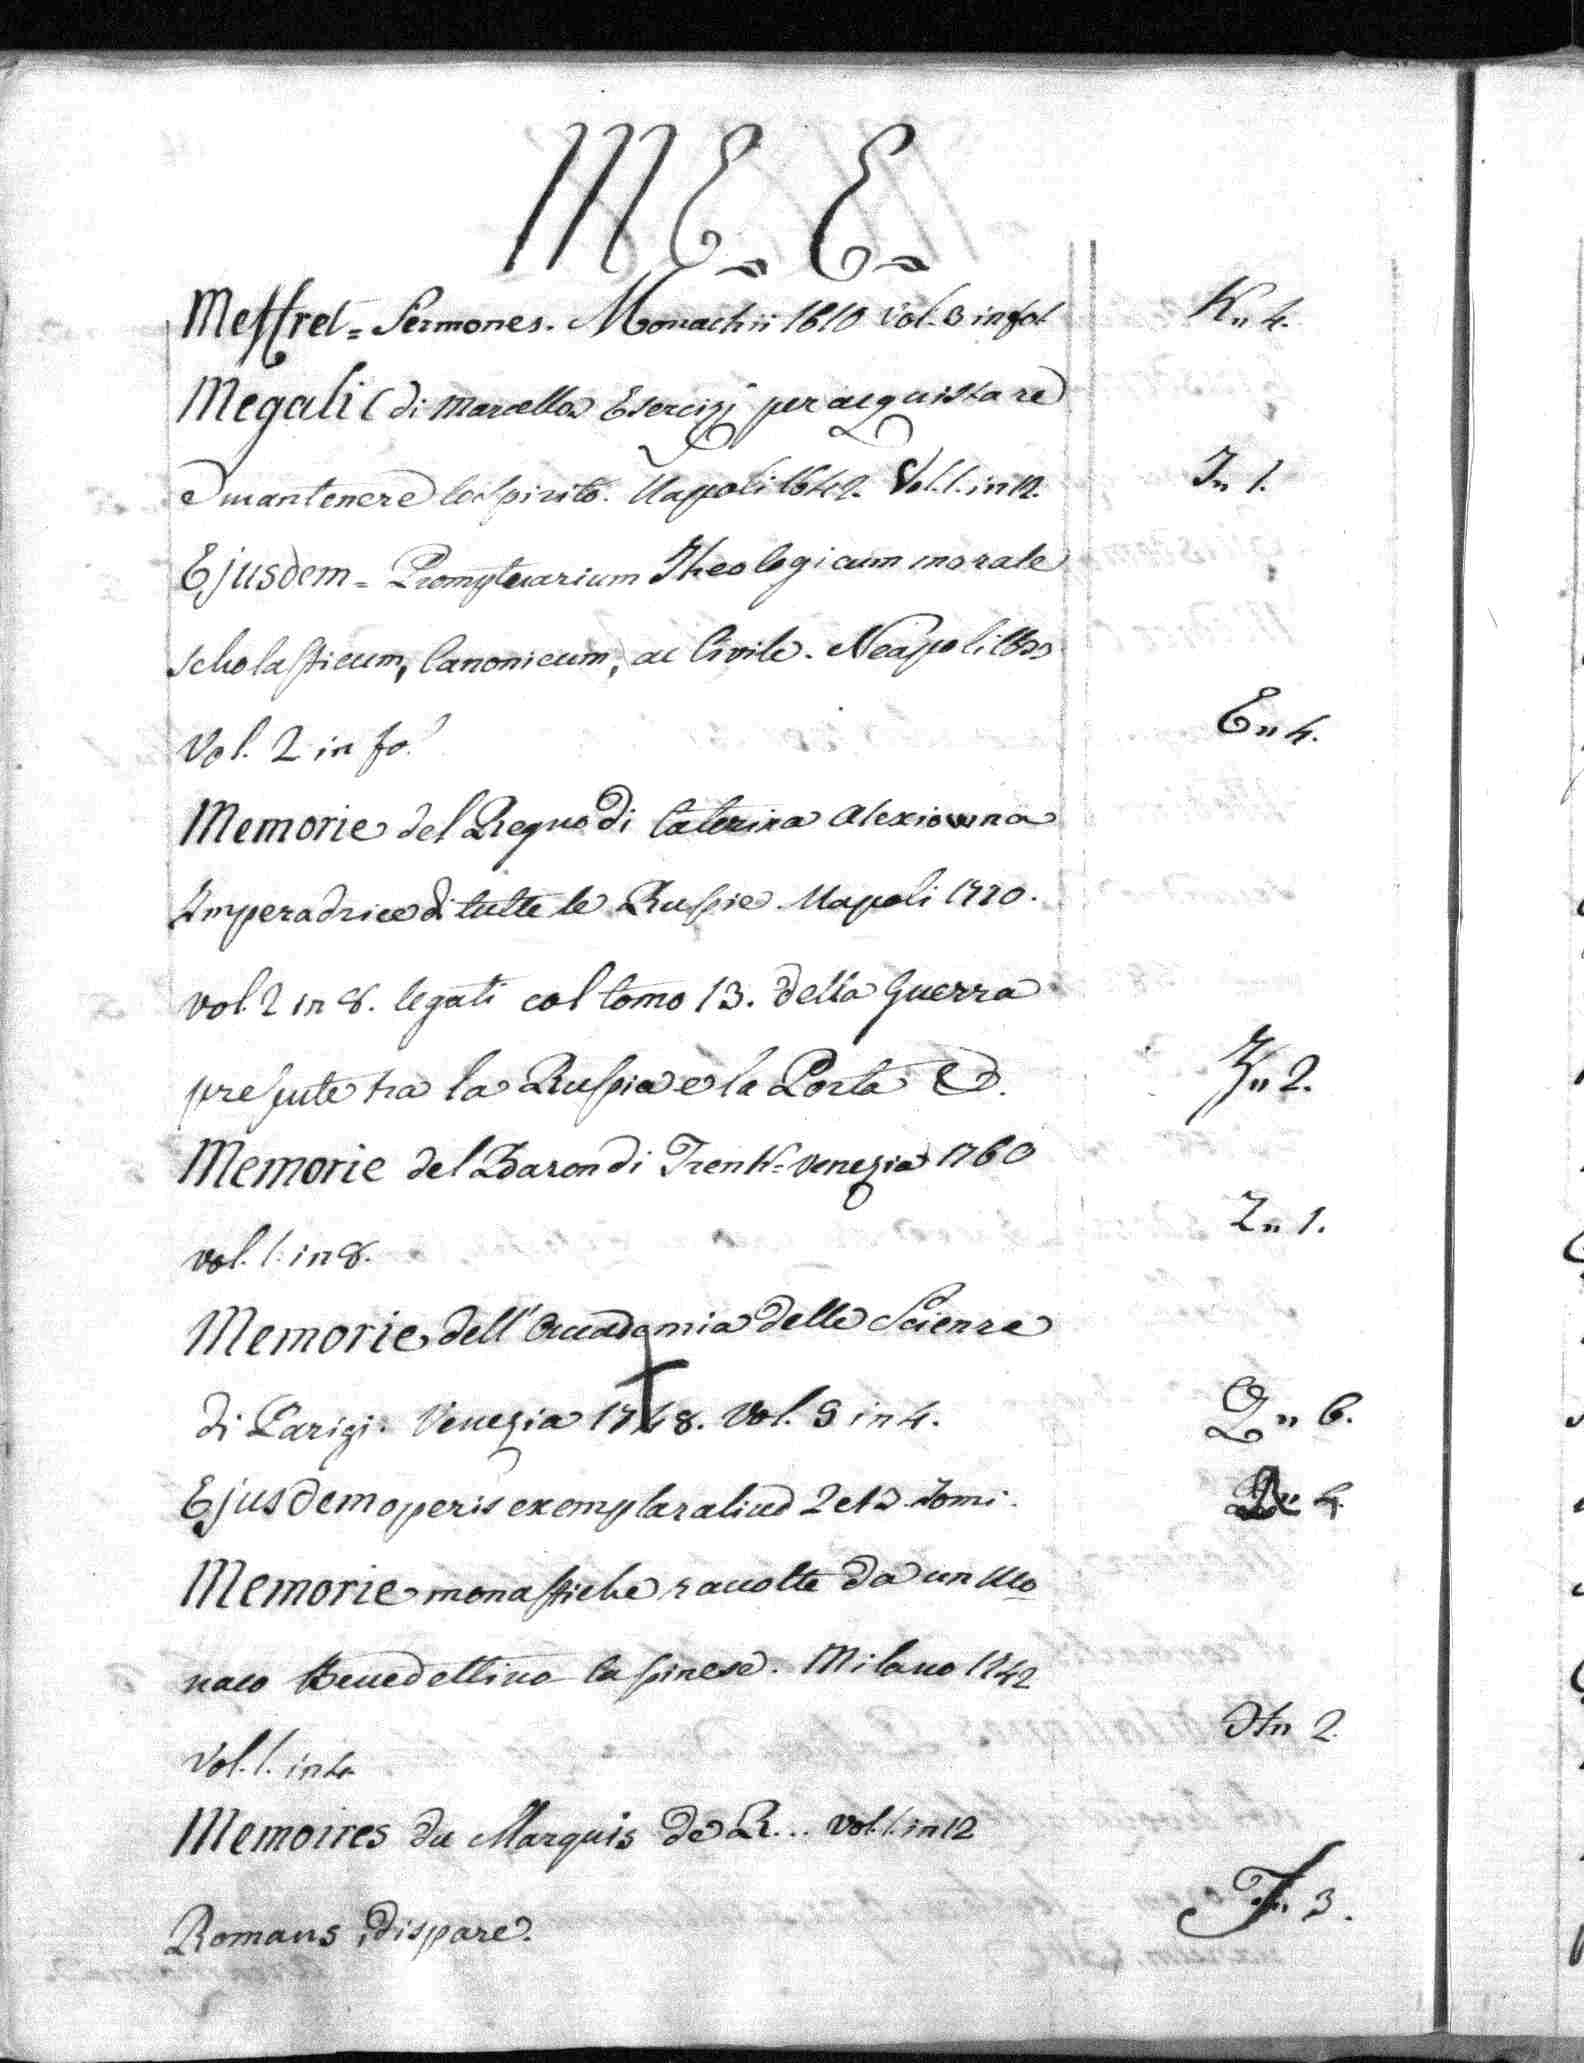 M E. E.
Meffret = Sermones. Monachii 1610 vol. 3 in fol. K„ 4.
Megali (di Marcello) Esercizj per acquistare
e mantenere lo spirito. Napoli 1642. Vol. 1. in 12. I„ 1.
Ejusdem = Promptuarium Theologicum morale
scholasticum, Canonicum, ac Civile. Neapoli
Vol. 2 in fo.l E„ 4.
Memorie del Regno di Caterina Alexiowna
Imperadrice di tutte le Russie Napoli 1720.
vol. 2 in 8. legati col tomo 13. della Guerra
presente tra la Russia e la Porta &. 2.
Memorie del Baron di Trenk = Venezia 1760
vol. 1. in 8. Z„ 1.
Memorie dell'Accademia delle Scienze
di Parigi. Venezia 1748. Vol. 9 in 4. Q„ 6.
Ejusdem operis exemplar aliud 2 et 3 Tomi.
Memorie monastiche racolte da un Mo
naco Benedettino Casinese. Milano 1742
Vol. 1. in 4. H„ 2.
Memoires du Marquis de R... vol. 1. in 12
Romans, dispare. F„ 3.